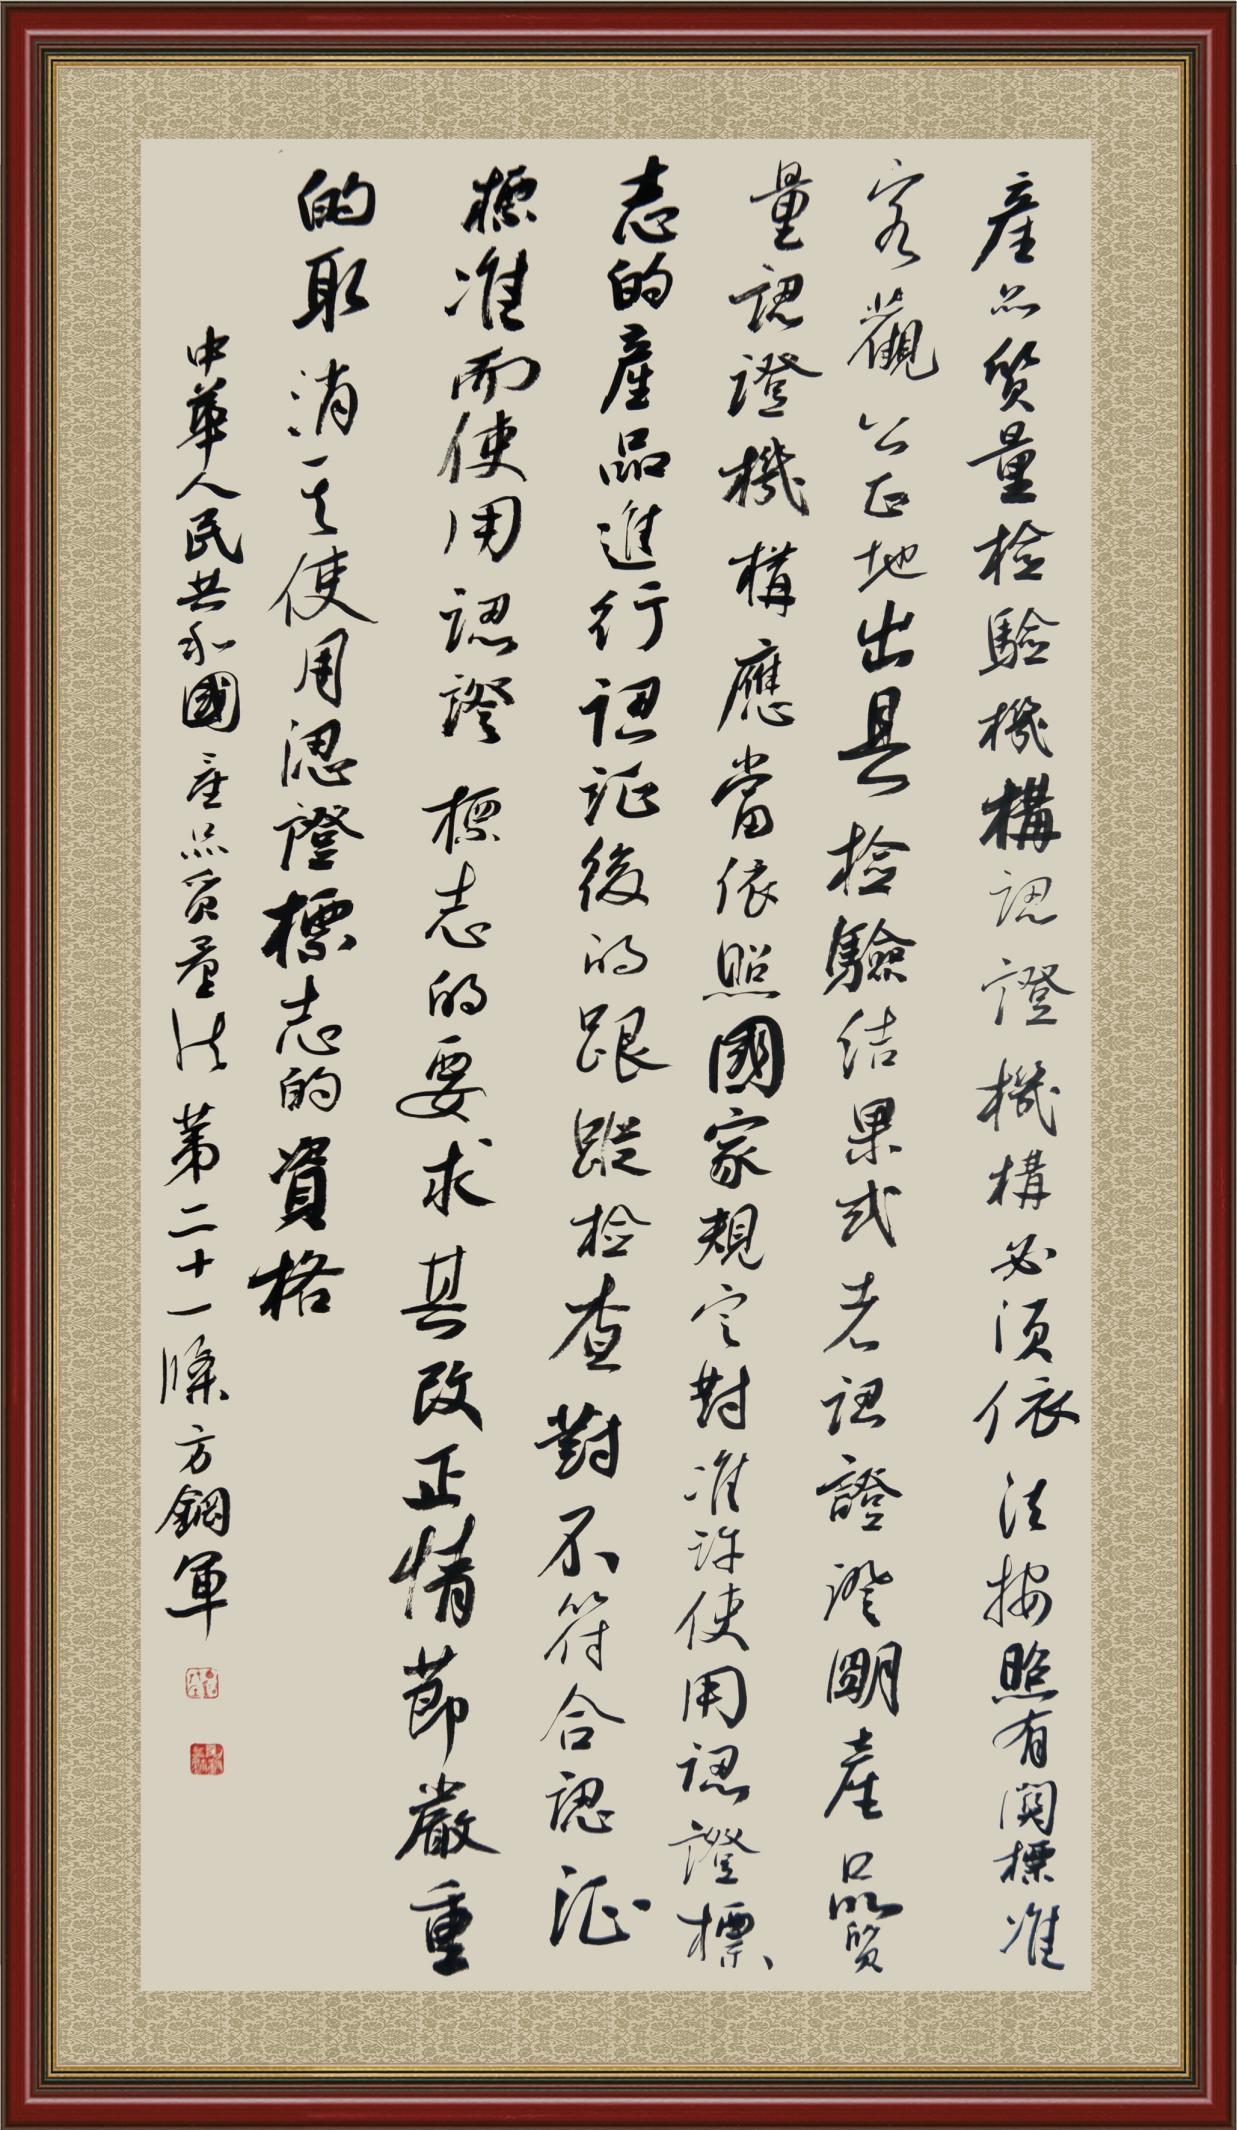 產品質量檢驗機構認證機構必須依法按照有關標准
客觀公正地出具檢驗結果或者認證證明產品質
量認證機構應當依照國家規定對准許使用認證標
志的產品進行認証後的跟蹤檢查對不符合認証
標准而使用認證標志的要求其改正情節嚴重
的取消其使用認證標志的資格
中華人民共和國產品質量法第二十一條方鋼軍